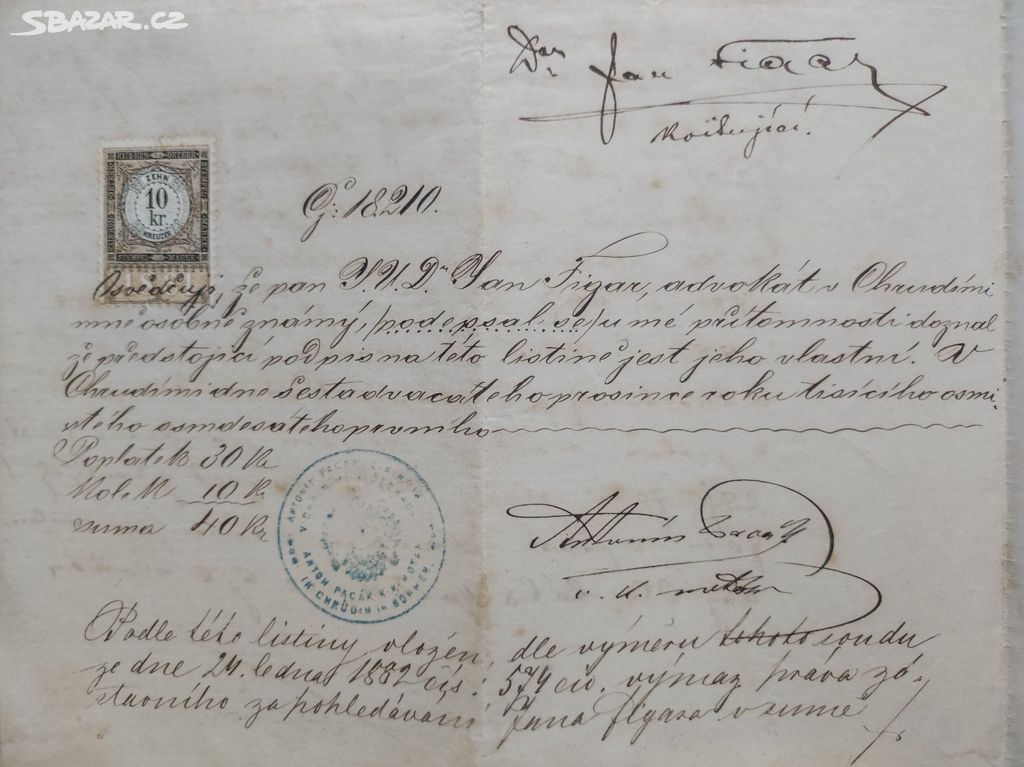 SBAZAR.CZ
Dr. Jan Figar
kvitující.
ZEHN
10
kr.
KREUZER
STEMPEL MARKE
G: 18.210.
Osvědčuji, že pan J. U. Dr. Jan Figar, advokát v Chrudimi
mně osobně známý, /podepsal se/ u mé přítomnosti doznal
že předstojící podpis na této listině jest jeho vlastní. V
Chrudimi dne šestadvacátého prosince roku tisícího osmi
stého osmdesátého prvního
Poplatek 30 Kr
Kolek 10 Kr
suma 40 Kr
ANTON PACÁK K.K. NOTAR
IN CHRUDIM IN BÖHMEN
Antonín Pacák
Podle této listiny vložen, dle výměru tohoto soudu
ze dne 24. ledna 1882 čís: 574 civ. výmaz práva zá-
stavního za pohledávání Jana Figara v sumě